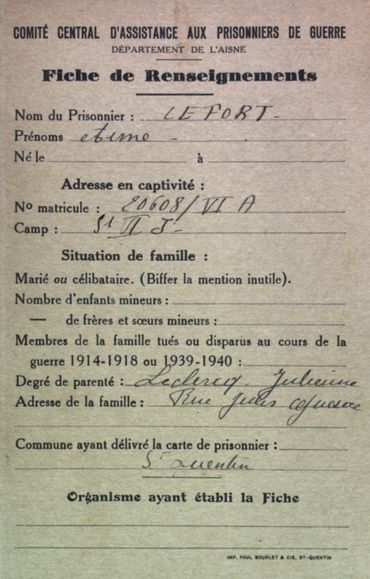 COMITÉ CENTRAL D'ASSISTANCE AUX PRISONNIERS DE GUERRE
DÉPARTEMENT DE L'AISNE
Fiche de Renseignements
Nom du Prisonnier : LEFORT
Prénoms
Né le à
Adresse en captivité :
No matricule : 20608/VI A
Camp : St II
Situation de famille :
Marié ou célibataire. (Biffer la mention inutile).
Nombre d'enfants mineurs :
— de frères et sœurs mineurs :
Membres de la famille tués ou disparus au cours de la
guerre 1914-1918 ou 1939-1940 :
Degré de parenté : Leclercq Julienne
Adresse de la famille : Rue Jules
Commune ayant délivré la carte de prisonnier :
St Quentin
Organisme ayant établi la Fiche
IMP. PAUL BOURLET & CIE, ST-QUENTIN